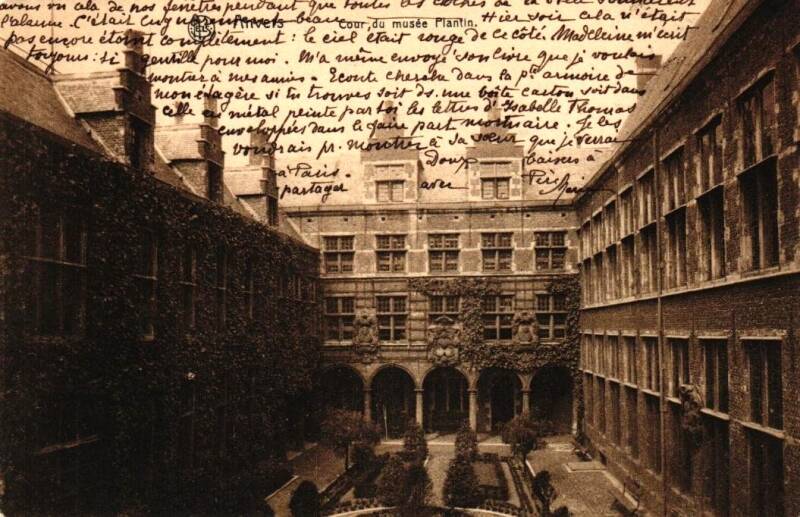 avons vu cela de nos fenêtres pendant que toutes les cloches de la ville sonnaient
l'alarme. C'était beau
Anvers Cour du musée Plantin.
Hier soir cela n'était
pas encore éteint complètement : le ciel était rouge de ce côté. Madeleine m'écrit
toujours si gentille pour moi. M'a même envoyé son livre que je voulais
montrer à mes amies. Ecoute cherche dans la pte armoire de
mon étagère si tu trouves soit ds. une boîte carton soit dans
celle en métal peinte par toi les lettres d'Isabelle Thomas
enveloppées dans le faire part mortuaire. Je les
voudrais pr. montrer à sa sœur que je verrai
à Paris. Doux baisers à
partager avec Père